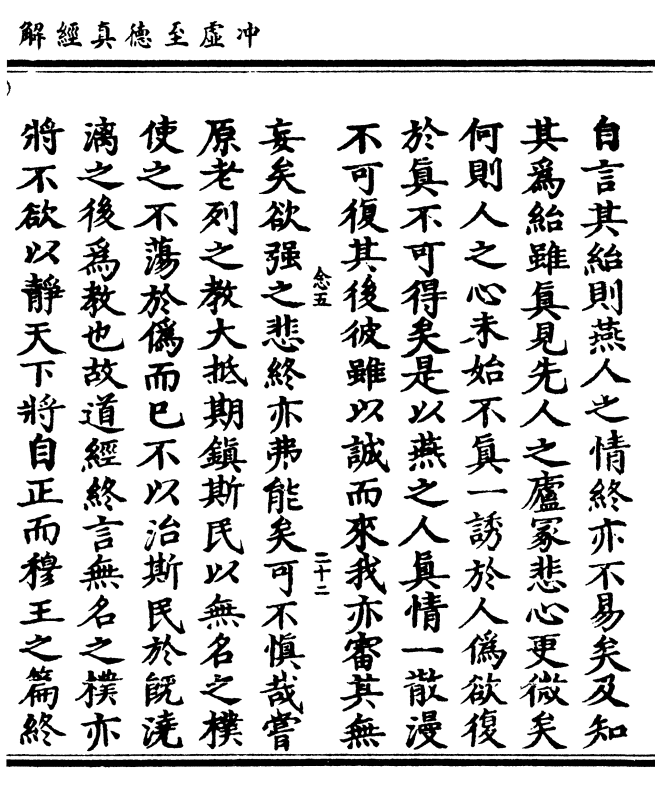 冲虛至德真經解
自言其紿則燕人之情終亦不易矣及知
其爲紿雖真見先人之廬冢悲心更微矣
何則人之心未始不真一誘於人僞欲復
於真不可得矣是以燕之人真情一散漫
不可復其後彼雖以誠而來我亦審其無
念五
二十二
妄矣欲强之悲終亦弗能矣可不慎哉嘗
原老列之教大抵期鎮斯民以無名之樸
使之不蕩於僞而已不以治斯民於旣澆
漓之後爲教也故道經終言無名之樸亦
將不欲以靜天下將自正而穆王之篇終